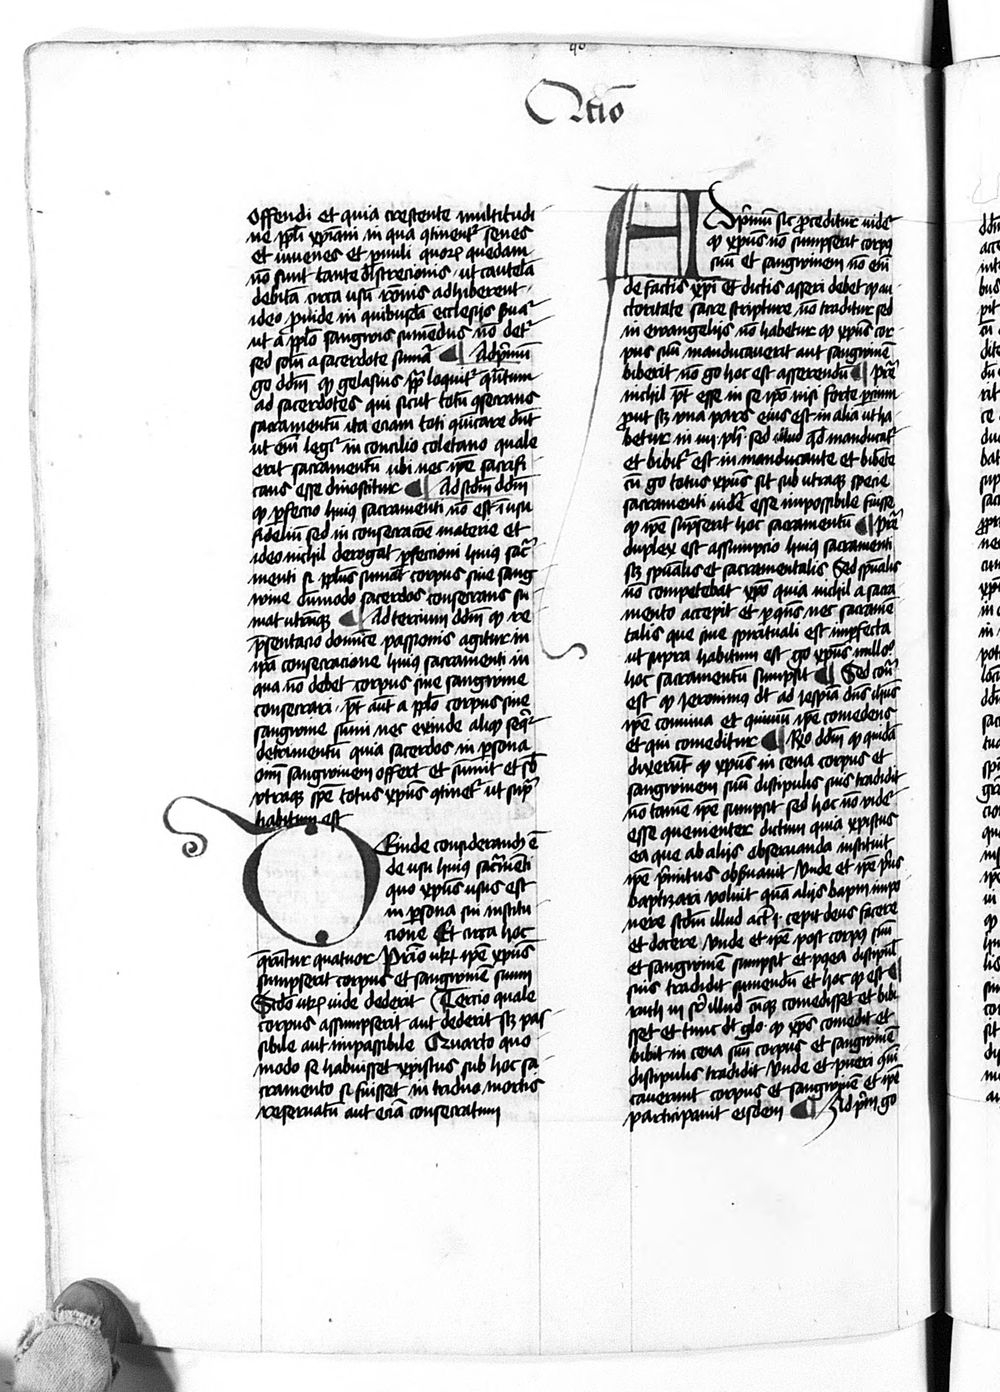 Q̄stio
offendi et quia crescente multitudi
ne pp̄li xp̄iani in qua ꝯtinent᷑ senes
et iuuenes et pͣuuli quoꝝ quedam
nō sunt tante discrecionis ut cautelā
debitā circa usū hͥus adhiberent
ideo ꝓuide in quibusdā ecclesijs
ut a pp̄lo sanguis sumēdus nō det᷑
sed solū a sacerdote sumat᷑ ¶ Ad pͥmū
gͦ dd̄m qͥ gelasius pp̄ loquit᷑ qͣntum
ad sacerdotes qui sicut totū ꝯsecrans
sacramentū ita eciam toti cōicare dn̄t
ut em̄ legr̄ in concilio toletano quale
erit sacramentū ubi nec ip̄e sacrifi
cans esse dinoscitur ¶ Ad scd̄m dd̄m
qͥ ꝑfectio huius sacramenti nō est ī usu
fidelium sed in consecracōe materie et
ideo nichil derogat ꝑfectioni huius sacͣ
menti si pp̄lus sumat corpus sine sang
wine dūmodo sacerdos consecrans su
mat utrūqꝫ ¶ Ad tercium dd̄m qͥ re
p̄sentacio dominice passionis agitur in
ip̄a consecracione huius sacramenti in
qua nō debet corpus sine sangwine
consecrari pōt aūt a pp̄lo corpus sine
sangwine sumi nec exinde aliqͦ seqͥt᷑
detrimentū quia sacerdos in ꝑsona
oīm sangwinem offert et sumit et sb
utraqꝫ spē totus xp̄us ꝯtinet᷑ ut supͣ
habitum est
Deinde considerandū ē
de usu huius sacͣmēti
quo xp̄us usus est
in ꝑsona sui institu
cione Et circa hoc
qͣrūtur quatuor Prīo utꝝ ip̄e xp̄us
sumpserit corpus et sangwinē suum
Scd̄o utꝝ iude dederit Tercio quale
corpus assumpserit aut dederit scꝫ pas
sibile aut impassibile Quarto quo
modo se habuisset xpistus sub hoc sa
cramento si fuisset in triduo mortis
reseruatū aut eciā consecratum
Ad pͥmū sic proceditur uidet᷑
qͥ xp̄us nō sumpserit corpꝯ
suū et sangwinem nō em̄
de factis xp̄i et dictis asseri debet qͥ au
ctoritate sacre scripture nō traditur sed
in ewangelijs nō habetur qͥ xp̄us cor
pus suū manducauerit aut sangwinē
biberit nō gͦ hoc est asserendū ¶ Prēa
nichil pōt esse in se ip̄o nisi forte
ꝓut scꝫ una pars eius est in alia ut ha
betur in iiij ph̄i sed illud qd̄ manducat᷑
et bibit᷑ est in manducante et bibēte
cū gͦ totus xp̄us sit sub utraqꝫ specie
sacramenti uidet᷑ esse impossibile fuisse
qͥ ip̄e sūpserit hoc sacramentū ¶ Prēa
duplex est assumpcio huius sacramenti
scꝫ sp̄ualis et sacramentalis Sed sp̄ualis
nō competebat xp̄o quia nichil a sacra
mento accepit et ꝑ ꝯn̄s nec sacramē
talis que sine spirituali est imꝑfecta
ut supra habitum est gͦ xp̄us nullo mͦ
hoc sacramentū sumpsit ¶ Sed contͣ
est qͥ Jeronimus dt ad dn̄s ihūs
ip̄e conuiua et conuiuiū ip̄e comedens
et qui comeditur ¶ Rn̄o dd̄m qͥ quidā
dixerūt qͥ xp̄us in cena corpus et
sangwinem suū discipulis suis tradidit
nō tamē ip̄e sumpsit sed hoc nō uidet᷑
esse quenienter dictum quia xpistus
ea que ab alijs obseruanda instituit
ip̄e pͥmitus obẜuauit Unde et ip̄e pͥus
baptizari voluit quā alijs baptim̄ impo
nere scd̄m illud act᷑ i cepit deus facere
et docere Unde et ip̄e post corpꝯ suū
et sangwinē sumpsit et postea discipul̄
suis tradidit sumendū et hoc qͥ est ¶
ruth iii suꝑ illud cūqꝫ comedisset et bibi
sset et tunc dt glo qͥ xp̄s comedit et
bibit in cena suū corpus et sangwinē
discipulis tradidit Unde et pueri cōi
cauerunt corpus et sangwinē et ip̄e
participauit eisdem ¶ Ad pͥm gͦ